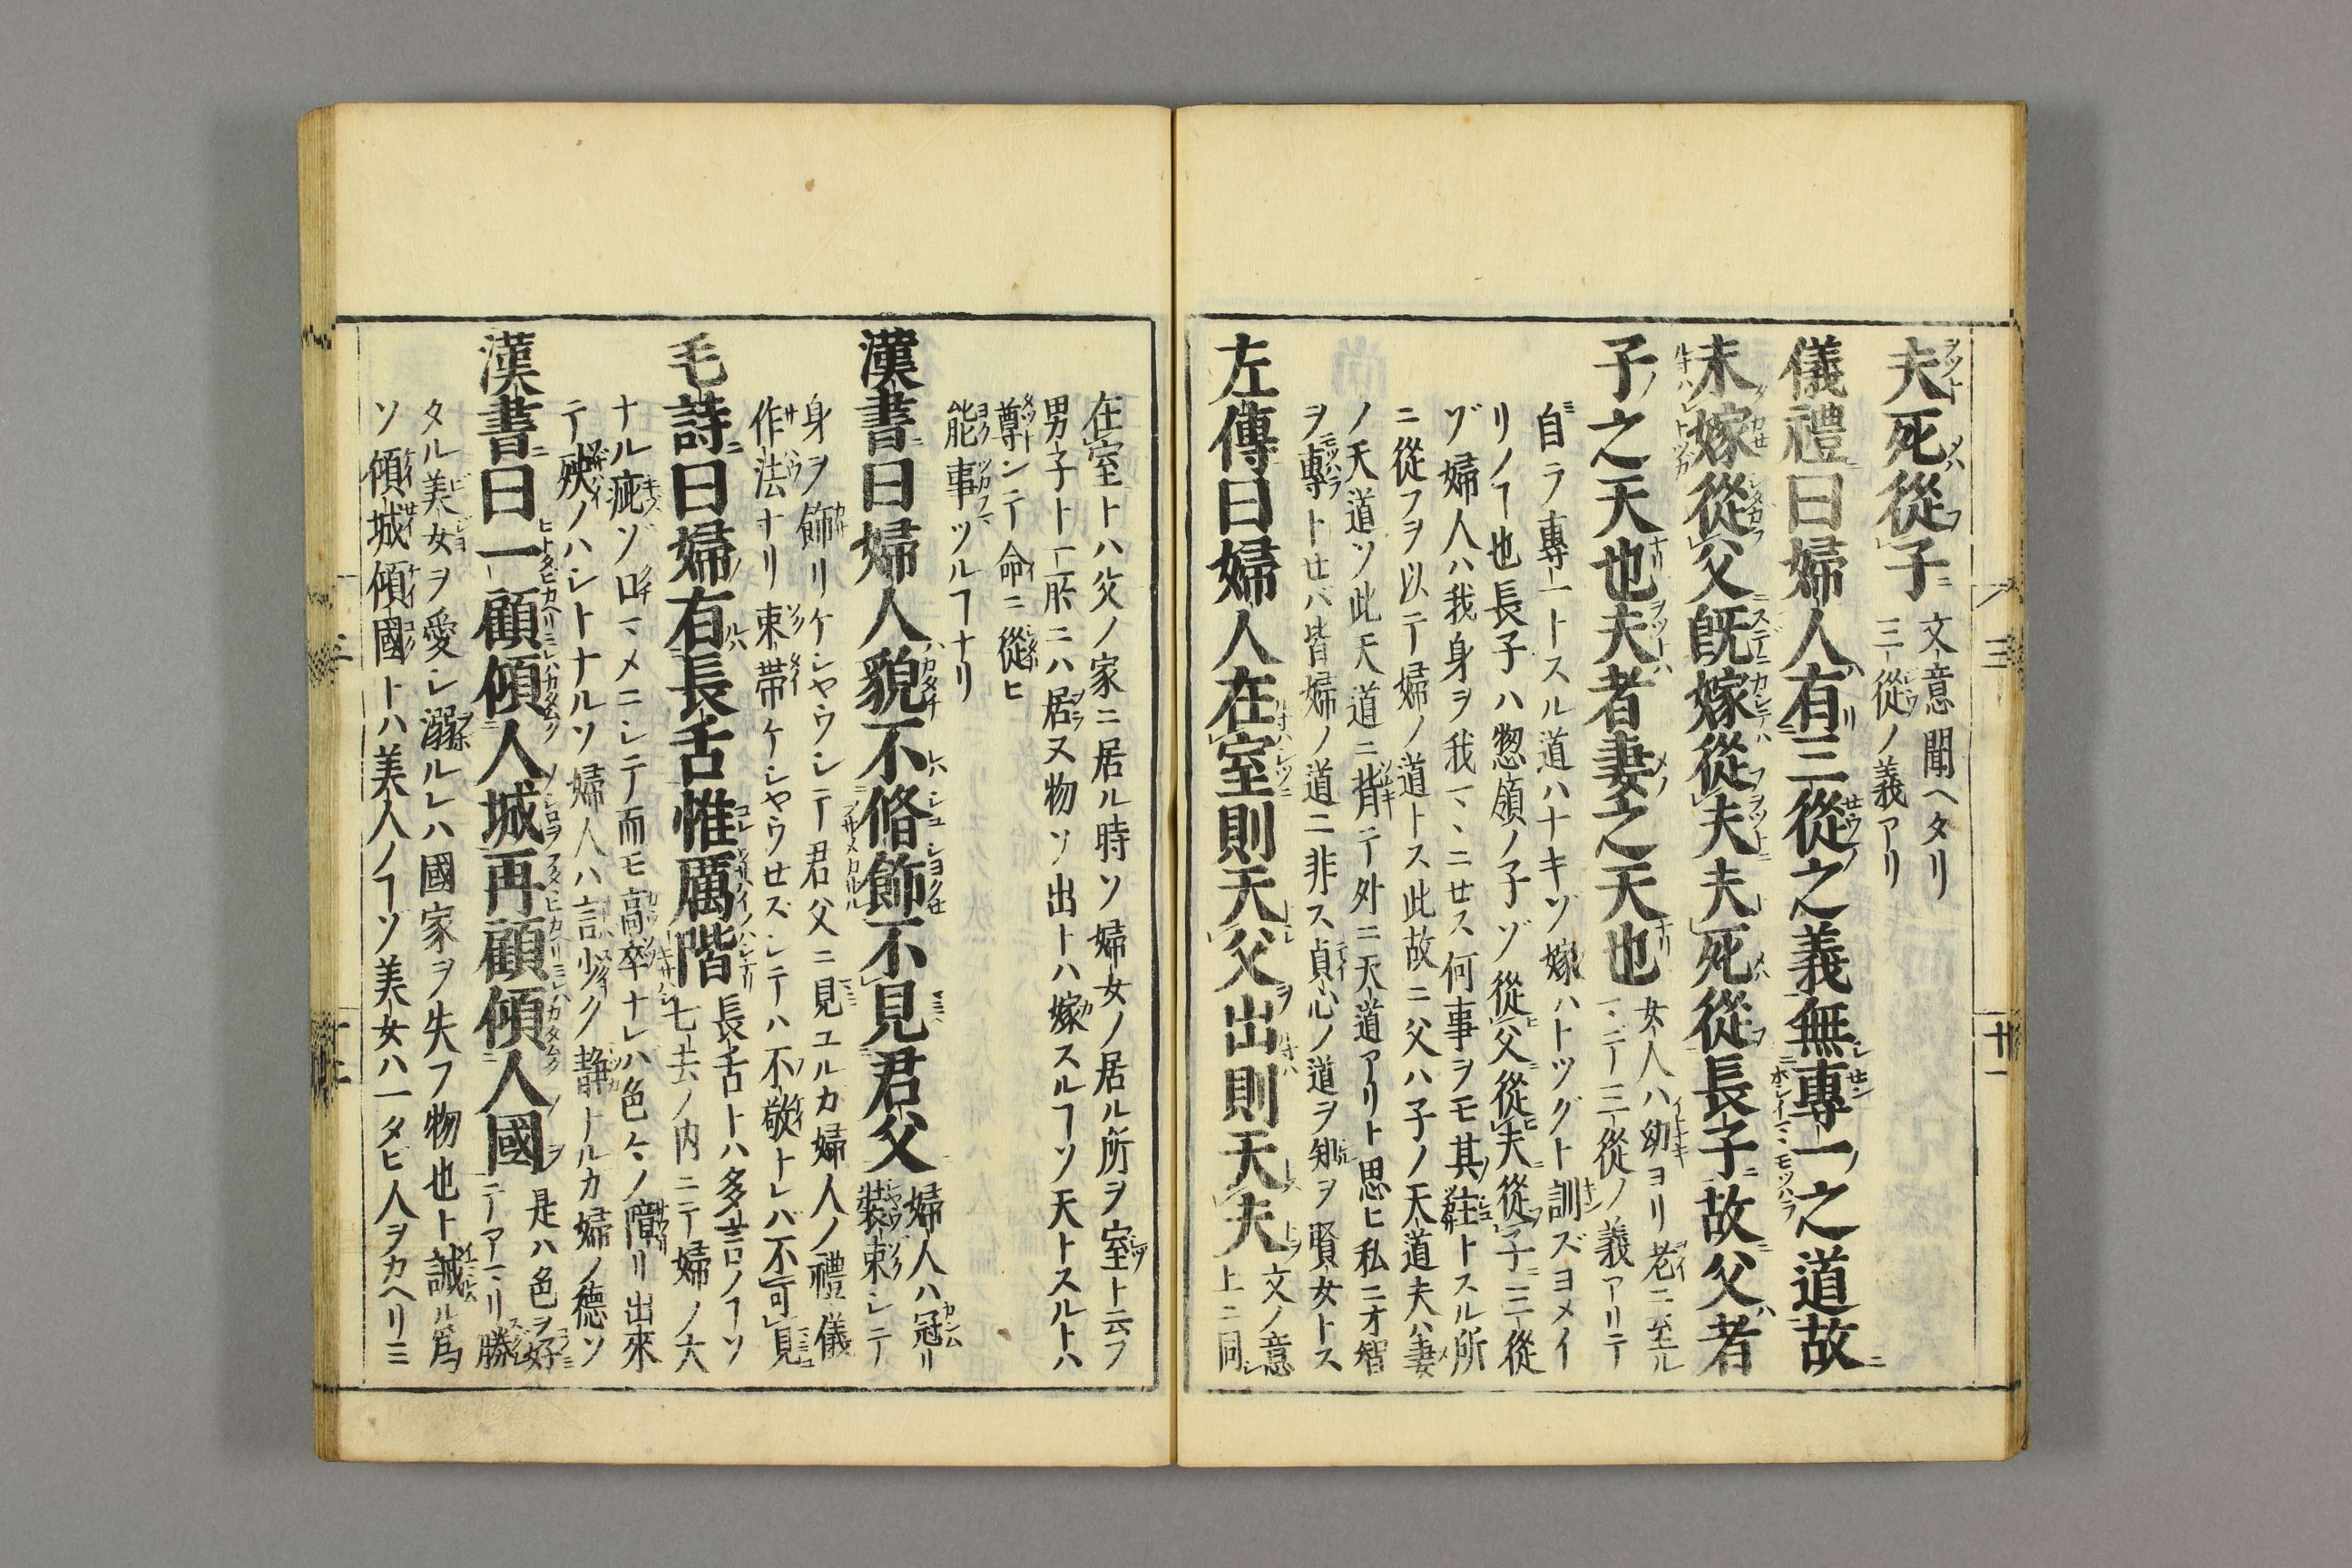 夫死從子 文意聞ヘタリ
三從ノ義アリ
儀禮曰婦人有三從之義無專一之道故
未嫁從父既嫁從夫夫死從長子故父者
子之天也夫者妻之天也 女人ハ幼ヨリ老ニ至ル
ニ三從ノ義アリテ
自ラ專一トスル道ハナキゾ嫁ハトツグト訓ズヨメイ
リノヿ也長子ハ惣領ノ子ゾ從父從夫從子三從
ゾ婦人ハ我身ヲ我マヽニセス何事ヲモ其ノ主トスル所
ニ從フヲ以テ婦ノ道トス此故ニ父ハ子ノ天道夫ハ妻
ノ天道ソ此天道ニ背テ外ニ天道アリト思ヒ私ニ才智
ヲ專トセバ皆婦ノ道ニ非ス貞心ノ道ヲ知ヲ賢女トス
左傳曰婦人在室則天父出則天夫 文ノ意
上ニ同シ
三
十一
在室トハ父ノ家ニ居ル時ソ婦女ノ居ル所ヲ室ト云フ
男子ト一所ニハ居ヌ物ソ出トハ嫁スルヿソ天トスルトハ
尊ンテ命ニ從ヒ
能事ツルヿナリ
漢書曰婦人貌不脩飾不見君父 婦人ハ冠リ
裝束シテ
身ヲ飾リケシヤウシテ君父ニ見ユルカ婦人ノ禮儀
作法ナリ束帶ケシヤウセズシテハ不敬トレバ不可見
毛詩曰婦有長舌惟厲階 長舌トハ多言ノヿソ
七去ノ内ニテ婦ノ大
ナル疵ゾ口マメニシテ而モ高卒ナレハ色々ノ障リ出來
テ殃ノハシトナルソ婦人ハ言少ク靜ナルカ婦ノ德ソ
漢書曰一顧傾人城再顧傾人國 是ハ色ヲ好ミ
テアマリ勝
タル美女ヲ愛シ溺ルレハ國家ヲ失フ物也ト誡ル爲
ソ傾城傾國トハ美人ノヿゾ美女ハ一タヒ人ヲカヘリミ